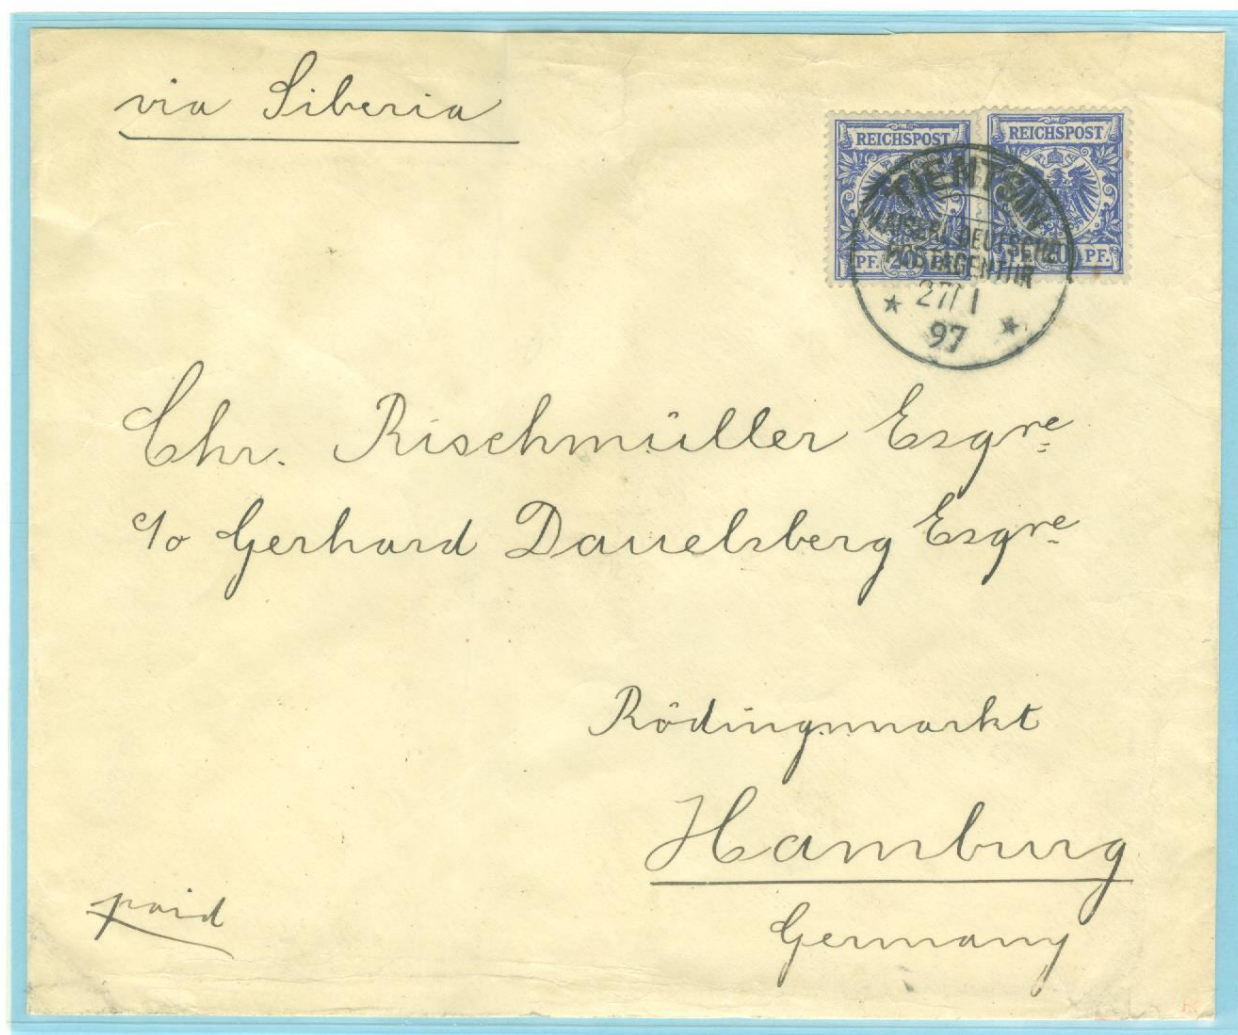 via Siberia
REICHSPOST REICHSPOST
PF. 20 PF. PF. 20 PF.
TIENTSIN
KAISERL. DEUTSCHE
POSTAGENTUR
27/1
97
Chr. Rischmüller Esqre
c/o Gerhard Dauelsberg Esqre
Rödingsmarkt
Hamburg
Germany
paid